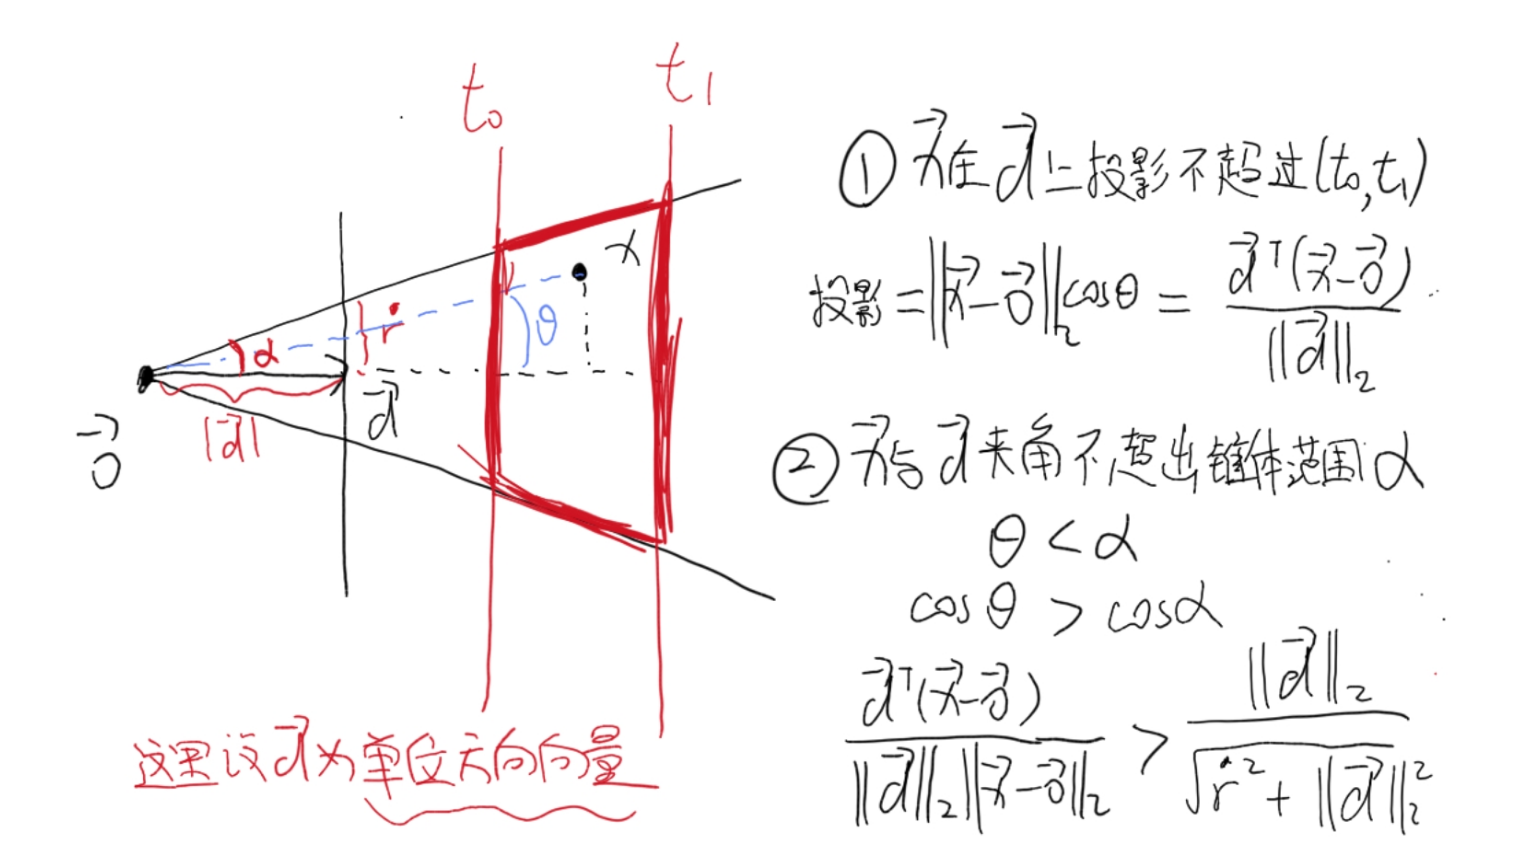 t₀
t₁
x
ṙ
θ
α
d⃗
|d⃗|
o⃗
这里设d⃗为单位方向向量
① x⃗在d⃗上投影不超过(t₀,t₁)
投影=‖x⃗-o⃗‖₂cosθ = d⃗ᵀ(x⃗-o⃗) / ‖d⃗‖₂
② x⃗与d⃗夹角不超出锥体范围α
θ < α
cosθ > cosα
d⃗ᵀ(x⃗-o⃗) / ‖d⃗‖₂‖x⃗-o⃗‖₂ > ‖d⃗‖₂ / √(ṙ²+‖d⃗‖₂²)